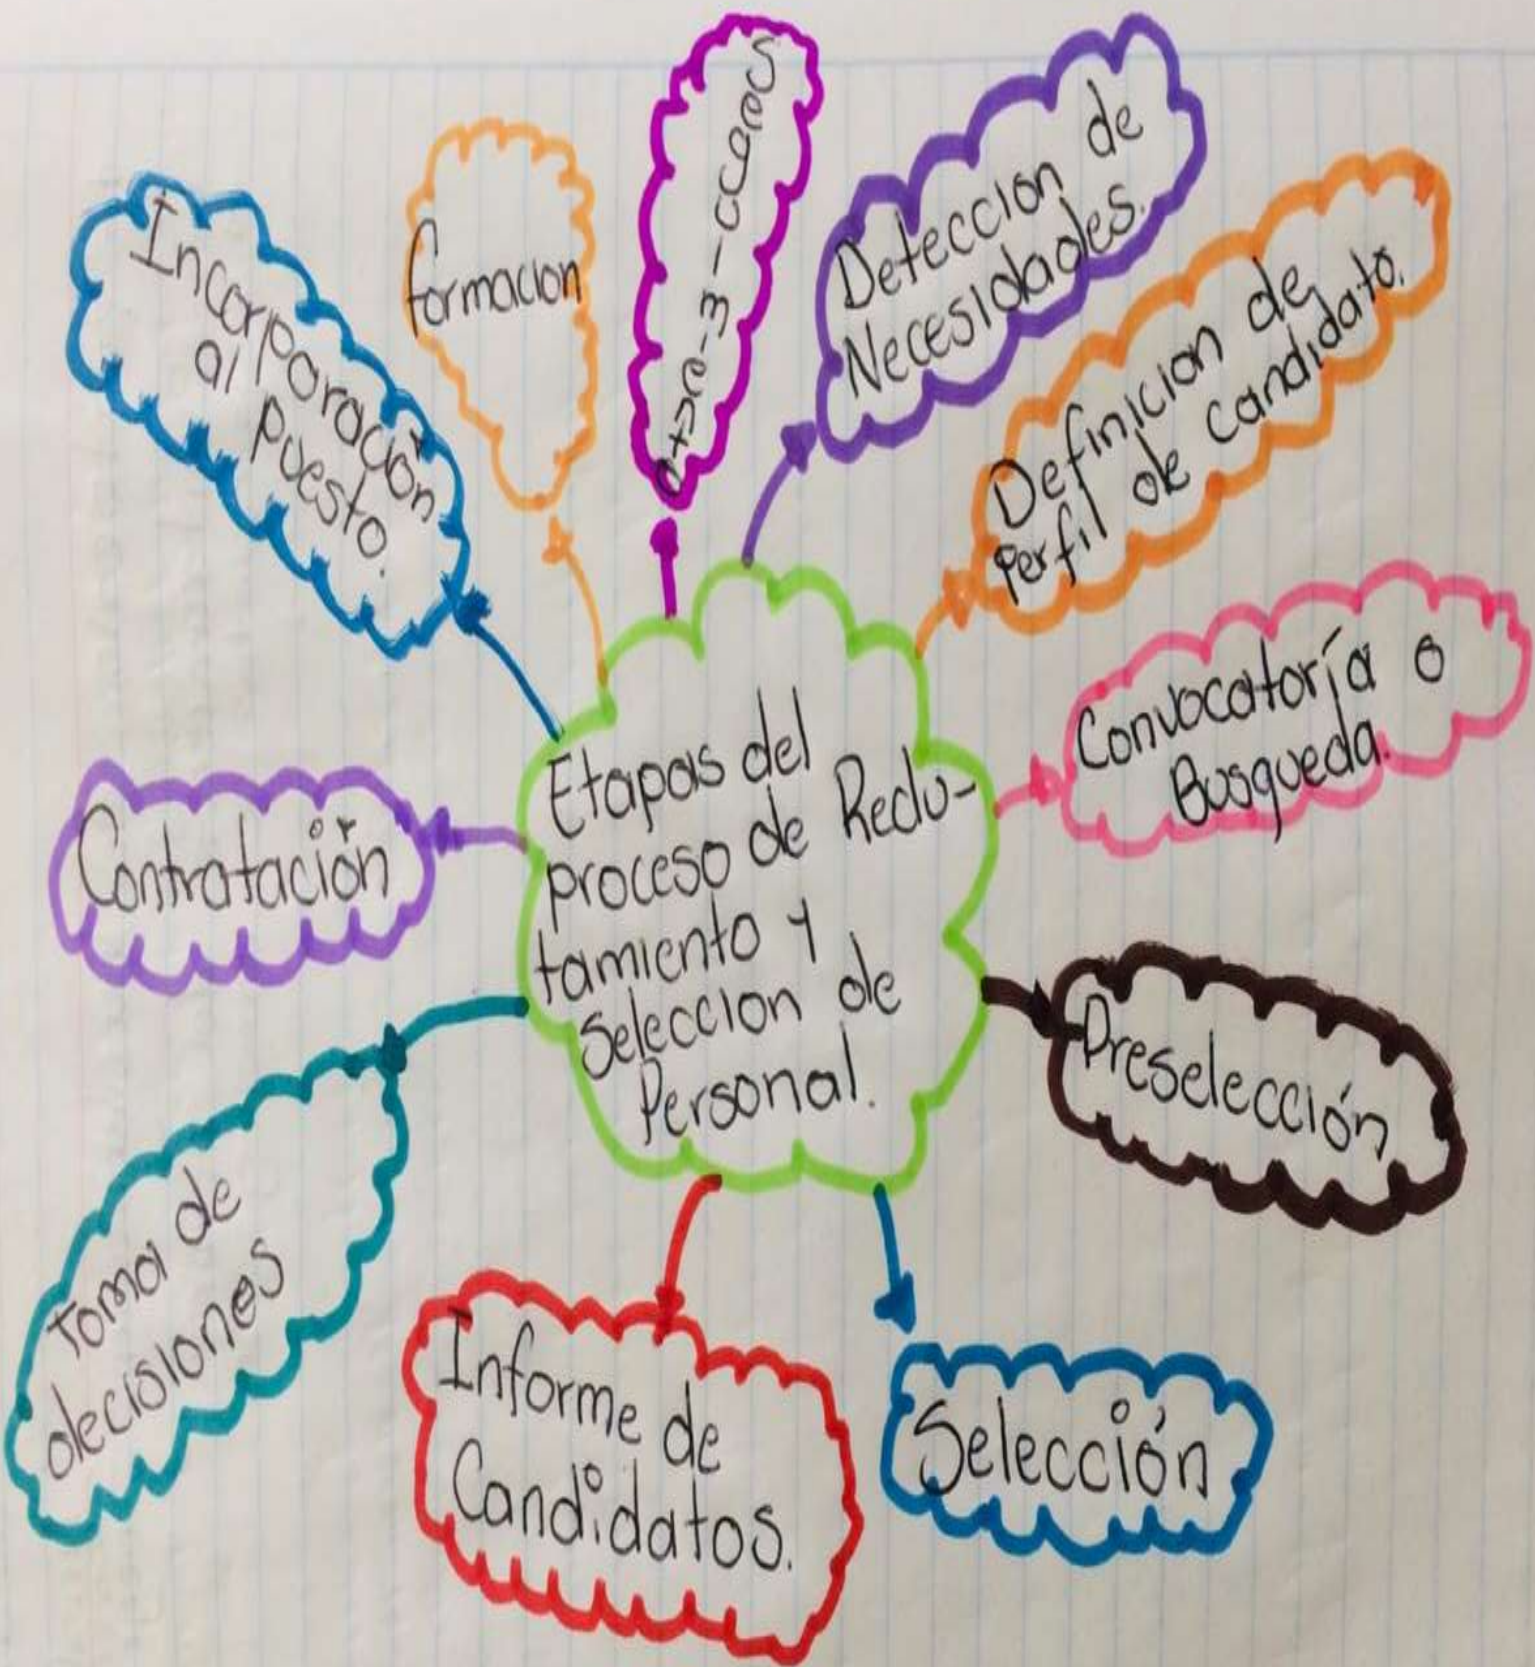 Etapas del
proceso de Reclu-
tamiento y
Seleccion de
Personal.
Deteccion de
Necesidades.
Definicion de
Perfil de Candidato.
Convocatoría o
Busqueda.
Preselección
Selección
Informe de
Candidatos.
toma de
decisiones
Contratación
Incorporación
al puesto.
formacion